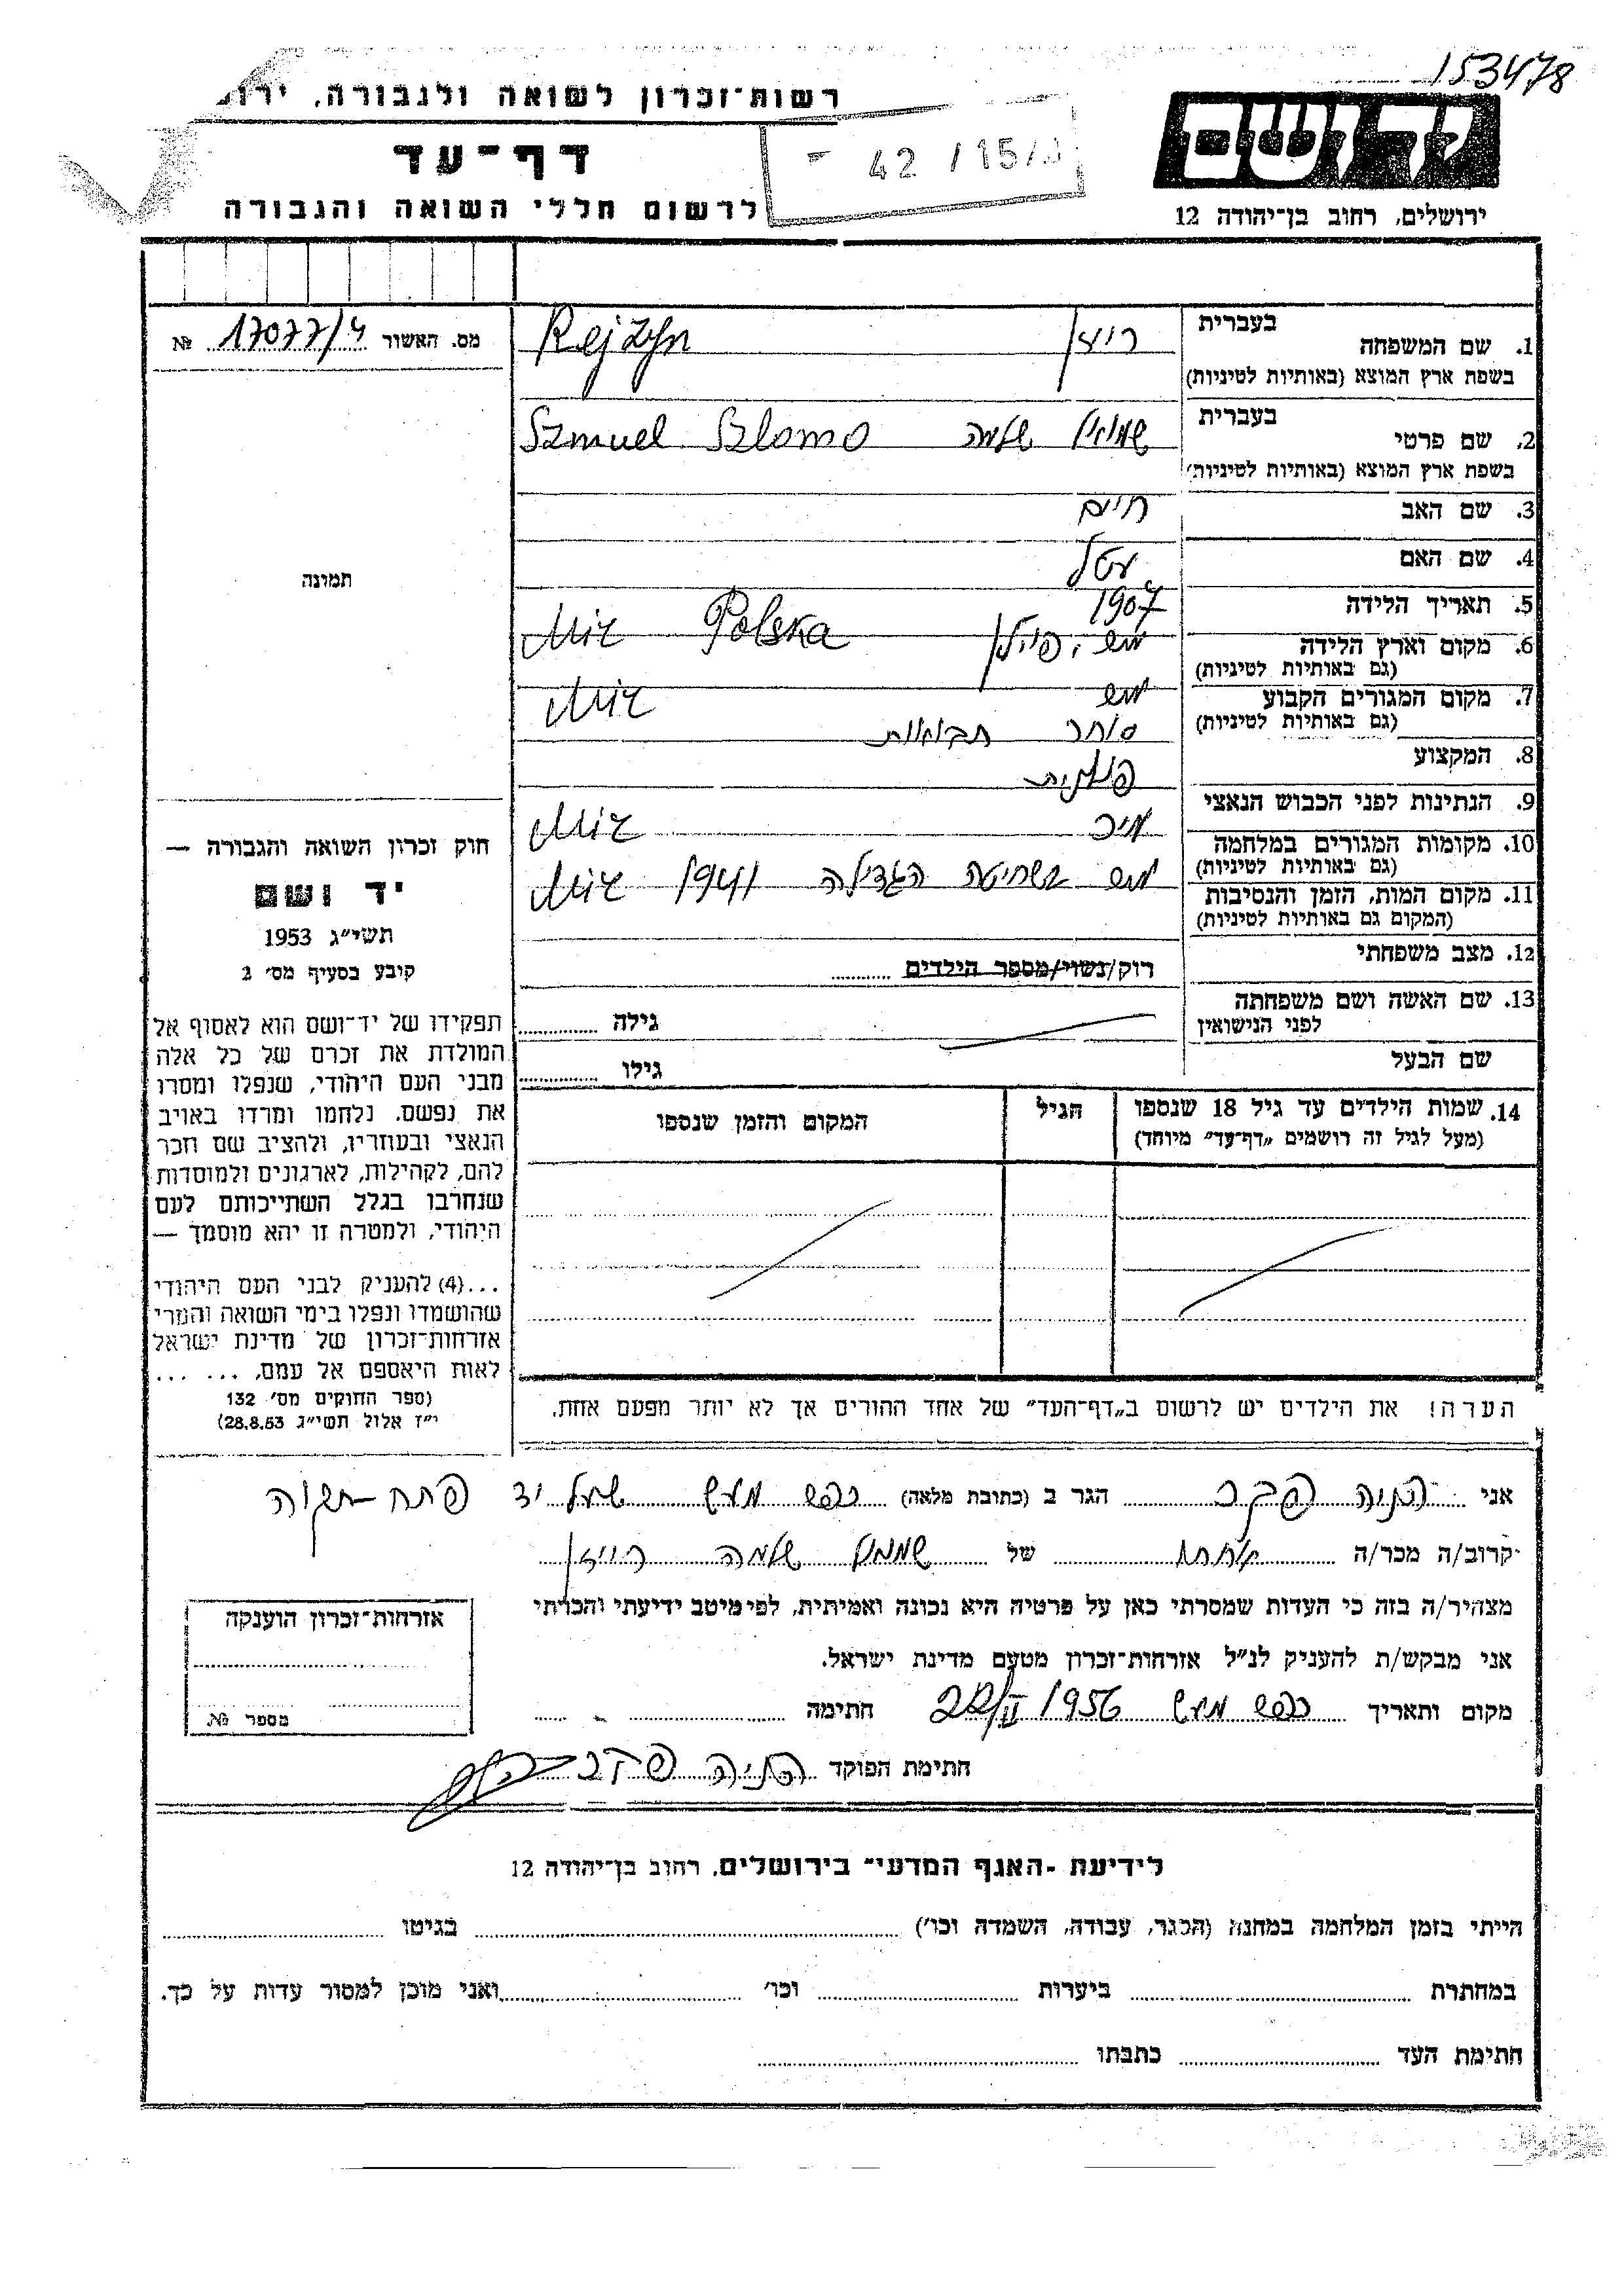 153478
רשות־זכרון לשואה ולגבורה,
דף־עד
לרשום חללי השואה והגבורה
42 / 15/
יד ושם
ירושלים, רחוב בן־יהודה 12
מס. האשור 17077/4 №
תמונה
חוק זכרון השואה והגבורה —
יד ושם
תשי״ג 1953
קובע בסעיף מס׳ 2
תפקידו של יד־ושם הוא לאסוף אל
המולדת את זכרם של כל אלה
מבני העם היהודי, שנפלו ומסרו
את נפשם, נלחמו ומרדו באויב
הנאצי ובעוזריו, ולהציב שם וזכר
להם, לקהילות, לארגונים ולמוסדות
שנחרבו בגלל השתייכותם לעם
היהודי, ולמטרה זו יהא מוסמך —
...(4) להעניק לבני העם היהודי
שהושמדו ונפלו בימי השואה והמרי
אזרחות־זכרון של מדינת ישראל
לאות היאספם אל עמם. ... ...
(ספר החוקים מס׳ 132
י״ז אלול תשי״ג 28.8.53)
1. שם המשפחה בעברית רייזן
בשפת ארץ המוצא (באותיות לטיניות) Rejzyn
2. שם פרטי בעברית שמואל שלמה
בשפת ארץ המוצא (באותיות לטיניות) Szmuel Szlomo
3. שם האב חיים
4. שם האם עטל
5. תאריך הלידה 1907
6. מקום וארץ הלידה (גם באותיות לטיניות) פוילן Mir Polska
7. מקום המגורים הקבוע (גם באותיות לטיניות) Mir
8. המקצוע סוחר תבואות
9. הנתינות לפני הכבוש הנאצי פולנית
10. מקומות המגורים במלחמה (גם באותיות לטיניות) מיר Mir
11. מקום המות, הזמן והנסיבות (המקום גם באותיות לטיניות) בשחיטה הגדולה 1941 Mir
12. מצב משפחתי רוק/נשוי/מספר הילדים
13. שם האשה ושם משפחתה לפני הנישואין גילה
שם הבעל גילו
14. שמות הילדים עד גיל 18 שנספו (מעל לגיל זה רושמים „דף־עד״ מיוחד) הגיל המקום והזמן שנספו
הערה! את הילדים יש לרשום ב„דף־העד״ של אחד ההורים אך לא יותר מפעם אחת.
אני הגר ב (כתובת מלאה) כפר מעש שעל יד פתח־תקוה
קרוב/ה מכר/ה אחות של שמואל שלמה רייזן
מצהיר/ה בזה כי העדות שמסרתי כאן על פרטיה היא נכונה ואמיתית, לפי מיטב ידיעתי והכרתי
אני מבקש/ת להעניק לנ״ל אזרחות־זכרון מטעם מדינת ישראל.
מקום ותאריך כפר מעש 22/II 1956 חתימה
חתימת הפוקד
אזרחות־זכרון הוענקה
מספר №.
לידיעת ־האגף המדעי״ בירושלים, רחוב בן־יהודה 12
הייתי בזמן המלחמה במחנה (הסגר, עבודה, השמדה וכו׳) בגיטו
במחתרת ביערות וכו׳ ואני מוכן למסור עדות על כך.
חתימת העד כתבתו